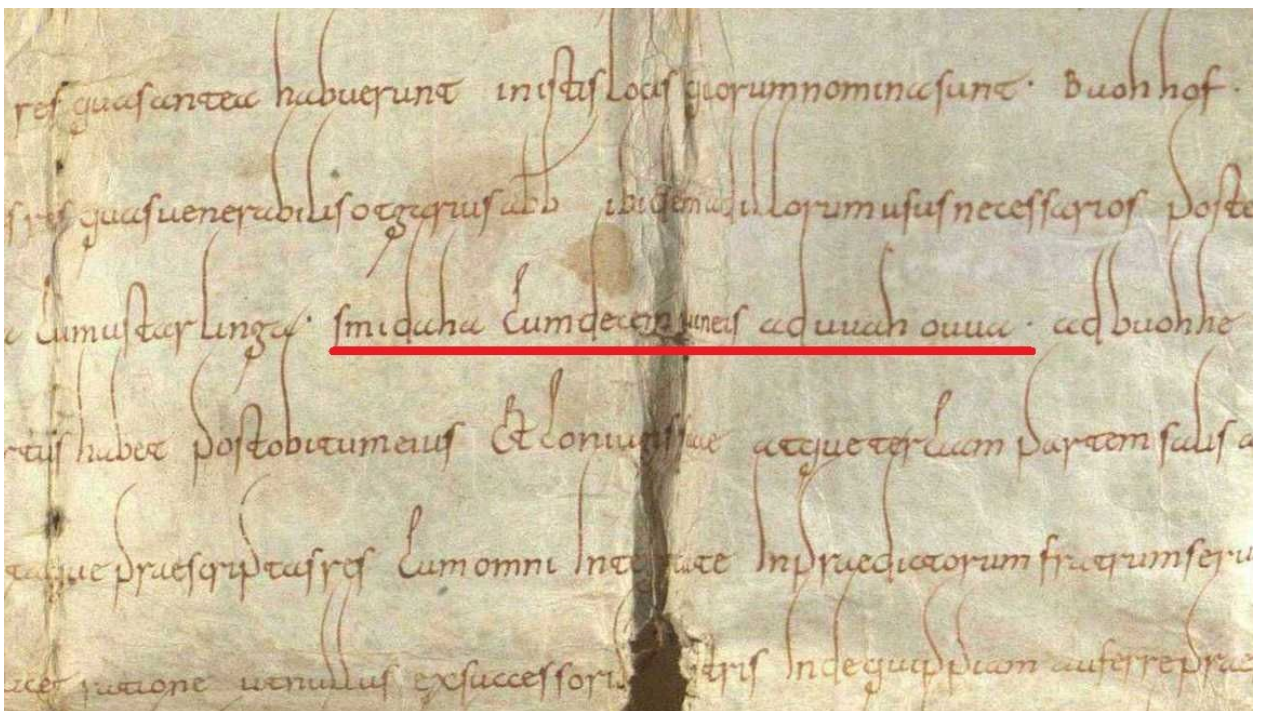 res quas antea habuerunt in istis locis quorum nomina sunt · Buohhof ·
res quas uenerabilis otgarius abb ibidem ad illorum usus necessarios poste
a cum ustarlinga · smidaha cum decem uineis ad uuahouua · ad buohhe
habet post obitum eius Et coniugis suae atque terciam partem salis a
que praescriptas res cum omni Integritate In praedictorum fratrum seru
ratione ut nullus ex successoribus nostris Inde quippiam auferre prae